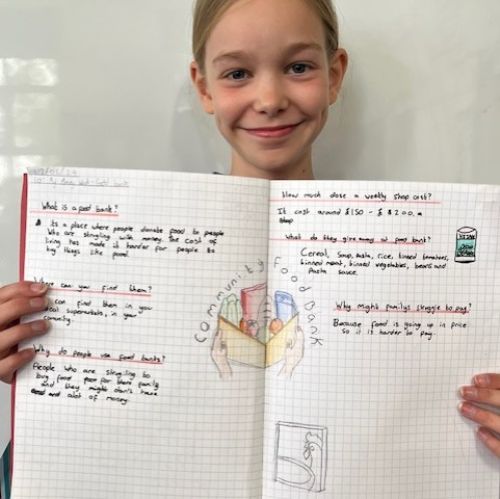 What is a food bank?
A its a place where people donate food to people
who are strugling with money. the cost of
living has made it harder for people to
buy things like food.
Where can you find them?
can find them in you
local supermarkets, in your
comunity.
Why do people use food banks?
People who are strugling to
buy food for there family
and they might don't have
alot of money.
How much dose a weekly shop cost?
It cost around £150 - £ 200. a
shop
What do they give away at food bank?
Cereal, soup, pasta, rice, tinned tomatoes,
tinned meat, tinned vegetables, beans and
Pasta sauce.
Why might familys struggle to pay?
Because food is going up in price
so it is harder to pay.
Community Food Bank